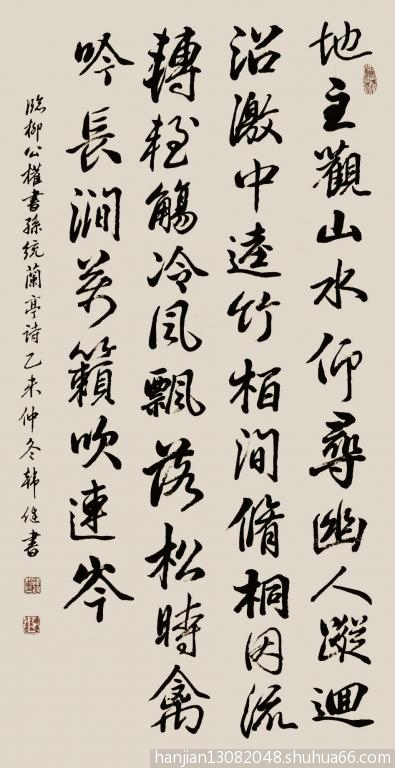 地主觀山水仰尋幽人蹤迴
沼激中逵竹柏間脩桐因流
轉輕觴冷風飄落松時禽
吟長澗萬籟吹連岑
臨柳公權書孫統蘭亭詩乙未仲冬韩健書
hanjian13082048.shuhua66.com